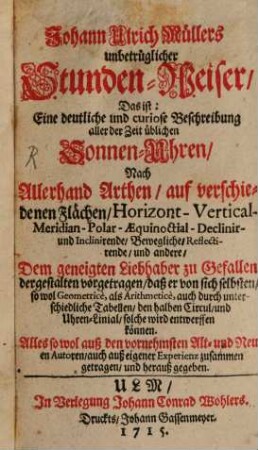 Johann Ulrich Müllers
unbetrüglicher
Stunden-Weiser/
Das ist:
Eine deutliche und curiose Beschreibung
aller der Zeit üblichen
Sonnen-Uhren/
Nach
Allerhand Arthen/ auf verschie-
denen Flächen/ Horizont- Vertical-
Meridian- Polar- Æquinoctial- Declinir-
und Inclinirende/ Bewegliche/ Reflecti-
rende/ und andere/
Dem geneigten Liebhaber zu Gefallen
der gestalten vorgetragen/ daß er von sich selbsten/
so wol Geometricè, als Arithmeticè, auch durch unter-
schiedliche Tabellen/ den halben Circul/ und
Uhren-Linial/ solche wird entwerffen
können.
Alles so wol auß den vornehmsten Alt- und Neu-
en Autoren/ auch auß eigener Experienz zusammen
getragen/ und herauß gegeben.
ULM/
In Verlegung Johann Conrad Wohlers.
Druckts/ Johann Gassenmeyer.
1715.